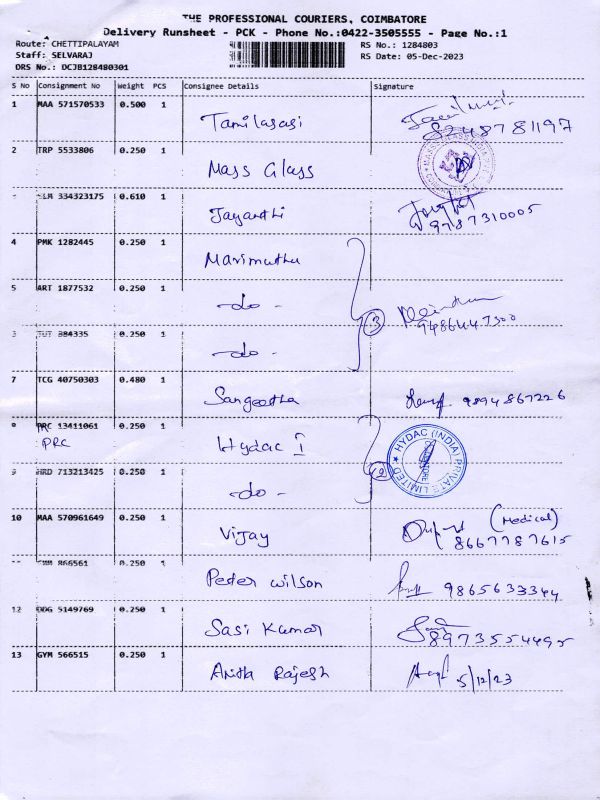 THE PROFESSIONAL COURIERS, COIMBATORE
Delivery Runsheet - PCK - Phone No.:0422-3505555 - Page No.:1
Route: CHETTIPALAYAM RS No.: 1284803
Staff: SELVARAJ RS Date: 05-Dec-2023
DRS No.: DCJB128480301
S No Consignment No Weight PCS Consignee Details Signature
1 MAA 571570533 0.500 1 Tamilasasi
8248781197
2 TRP 5533806 0.250 1 Mass Glass
334323175 0.610 1 Jayanthi
9787310005
4 PMK 1282445 0.250 1 Marimuthu
5 ART 1877532 0.250 1 -do-
3
TUT 884335 0.250 1 -do-
7 TCG 40750303 0.480 1 Sangeetha 9894867226
8 PRC 13411061 0.250 1 Hydac I
PRC
HYDAC (INDIA) PRIVATE LIMITED
COIMBATORE
2
9 HRD 713213425 0.250 1 -do-
10 MAA 570961649 0.250 1 Vijay (Medical)
8667787615
866561 0.250 1 Peter Wilson 9865633344
12 DDG 5149769 0.250 1 Sasi Kumar
8973554495
13 GYM 566515 0.250 1 Anitha Rajesh 5/12/23